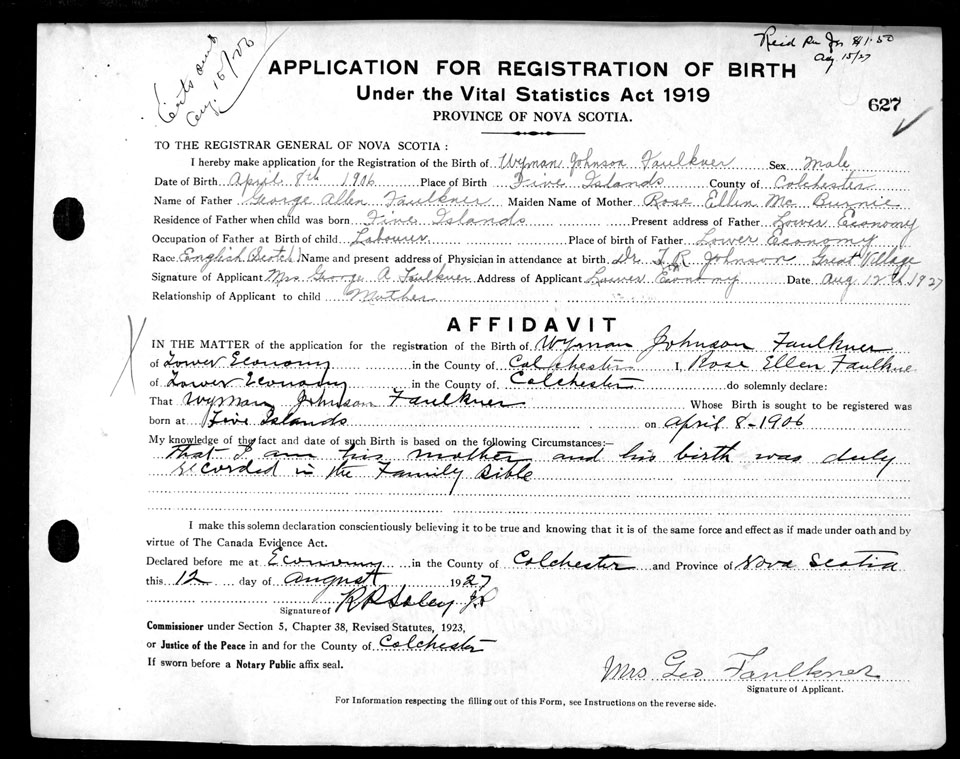 Aug 15/27
APPLICATION FOR REGISTRATION OF BIRTH
Under the Vital Statistics Act 1919
PROVINCE OF NOVA SCOTIA.
627
TO THE REGISTRAR GENERAL OF NOVA SCOTIA :
I hereby make application for the Registration of the Birth of Wyman Johnson Faulkner Sex Male
Date of Birth April 8th 1906 Place of Birth Five Islands County of Colchester
Name of Father George Allen Faulkner Maiden Name of Mother Rose Ellen Mc Burnie
Residence of Father when child was born Five Islands Present address of Father Lower Economy
Occupation of Father at Birth of child Labourer Place of birth of Father Lower Economy
Race English Scotch Name and present address of Physician in attendance at birth Dr. T. R. Johnson Great Village
Signature of Applicant Mrs George A Faulkner Address of Applicant Lower Economy Date Aug 12th 1927
Relationship of Applicant to child Mother
AFFIDAVIT
IN THE MATTER of the application for the registration of the Birth of Wyman Johnson Faulkner
of Lower Economy in the County of Colchester I, Rose Ellen Faulkne
of Lower Economy in the County of Colchester do solemnly declare:
That Wyman Johnson Faulkner Whose Birth is sought to be registered was
born at Five Islands on April 8-1906
My knowledge of the fact and date of such Birth is based on the following Circumstances:—
That I am his mother and his birth was duly
recorded in the Family Bible
I make this solemn declaration conscientiously believing it to be true and knowing that it is of the same force and effect as if made under oath and by
virtue of The Canada Evidence Act.
Declared before me at Economy in the County of Colchester and Province of Nova Scotia
this 12 day of August 1927
Signature of R R Soley J.P.
Commissioner under Section 5, Chapter 38, Revised Statutes, 1923,
or Justice of the Peace in and for the County of Colchester
If sworn before a Notary Public affix seal.
Mrs Geo Faulkner
Signature of Applicant.
For Information respecting the filling out of this Form, see Instructions on the reverse side.